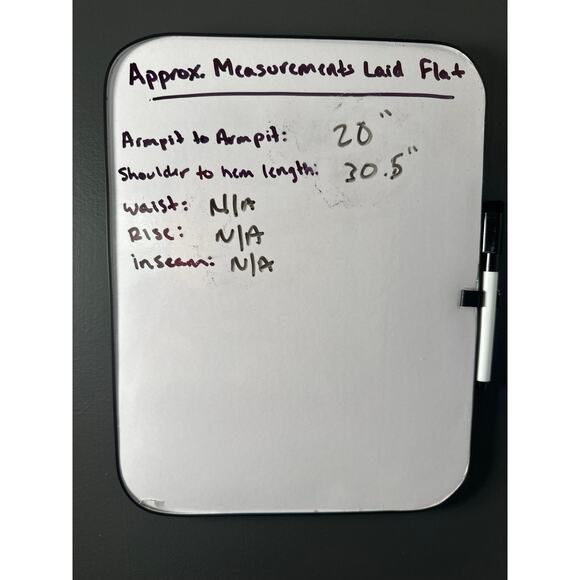 Approx. Measurements Laid Flat
Armpit to Armpit: 20"
Shoulder to hem length: 30.5"
Waist: N/A
Rise: N/A
inseam: N/A